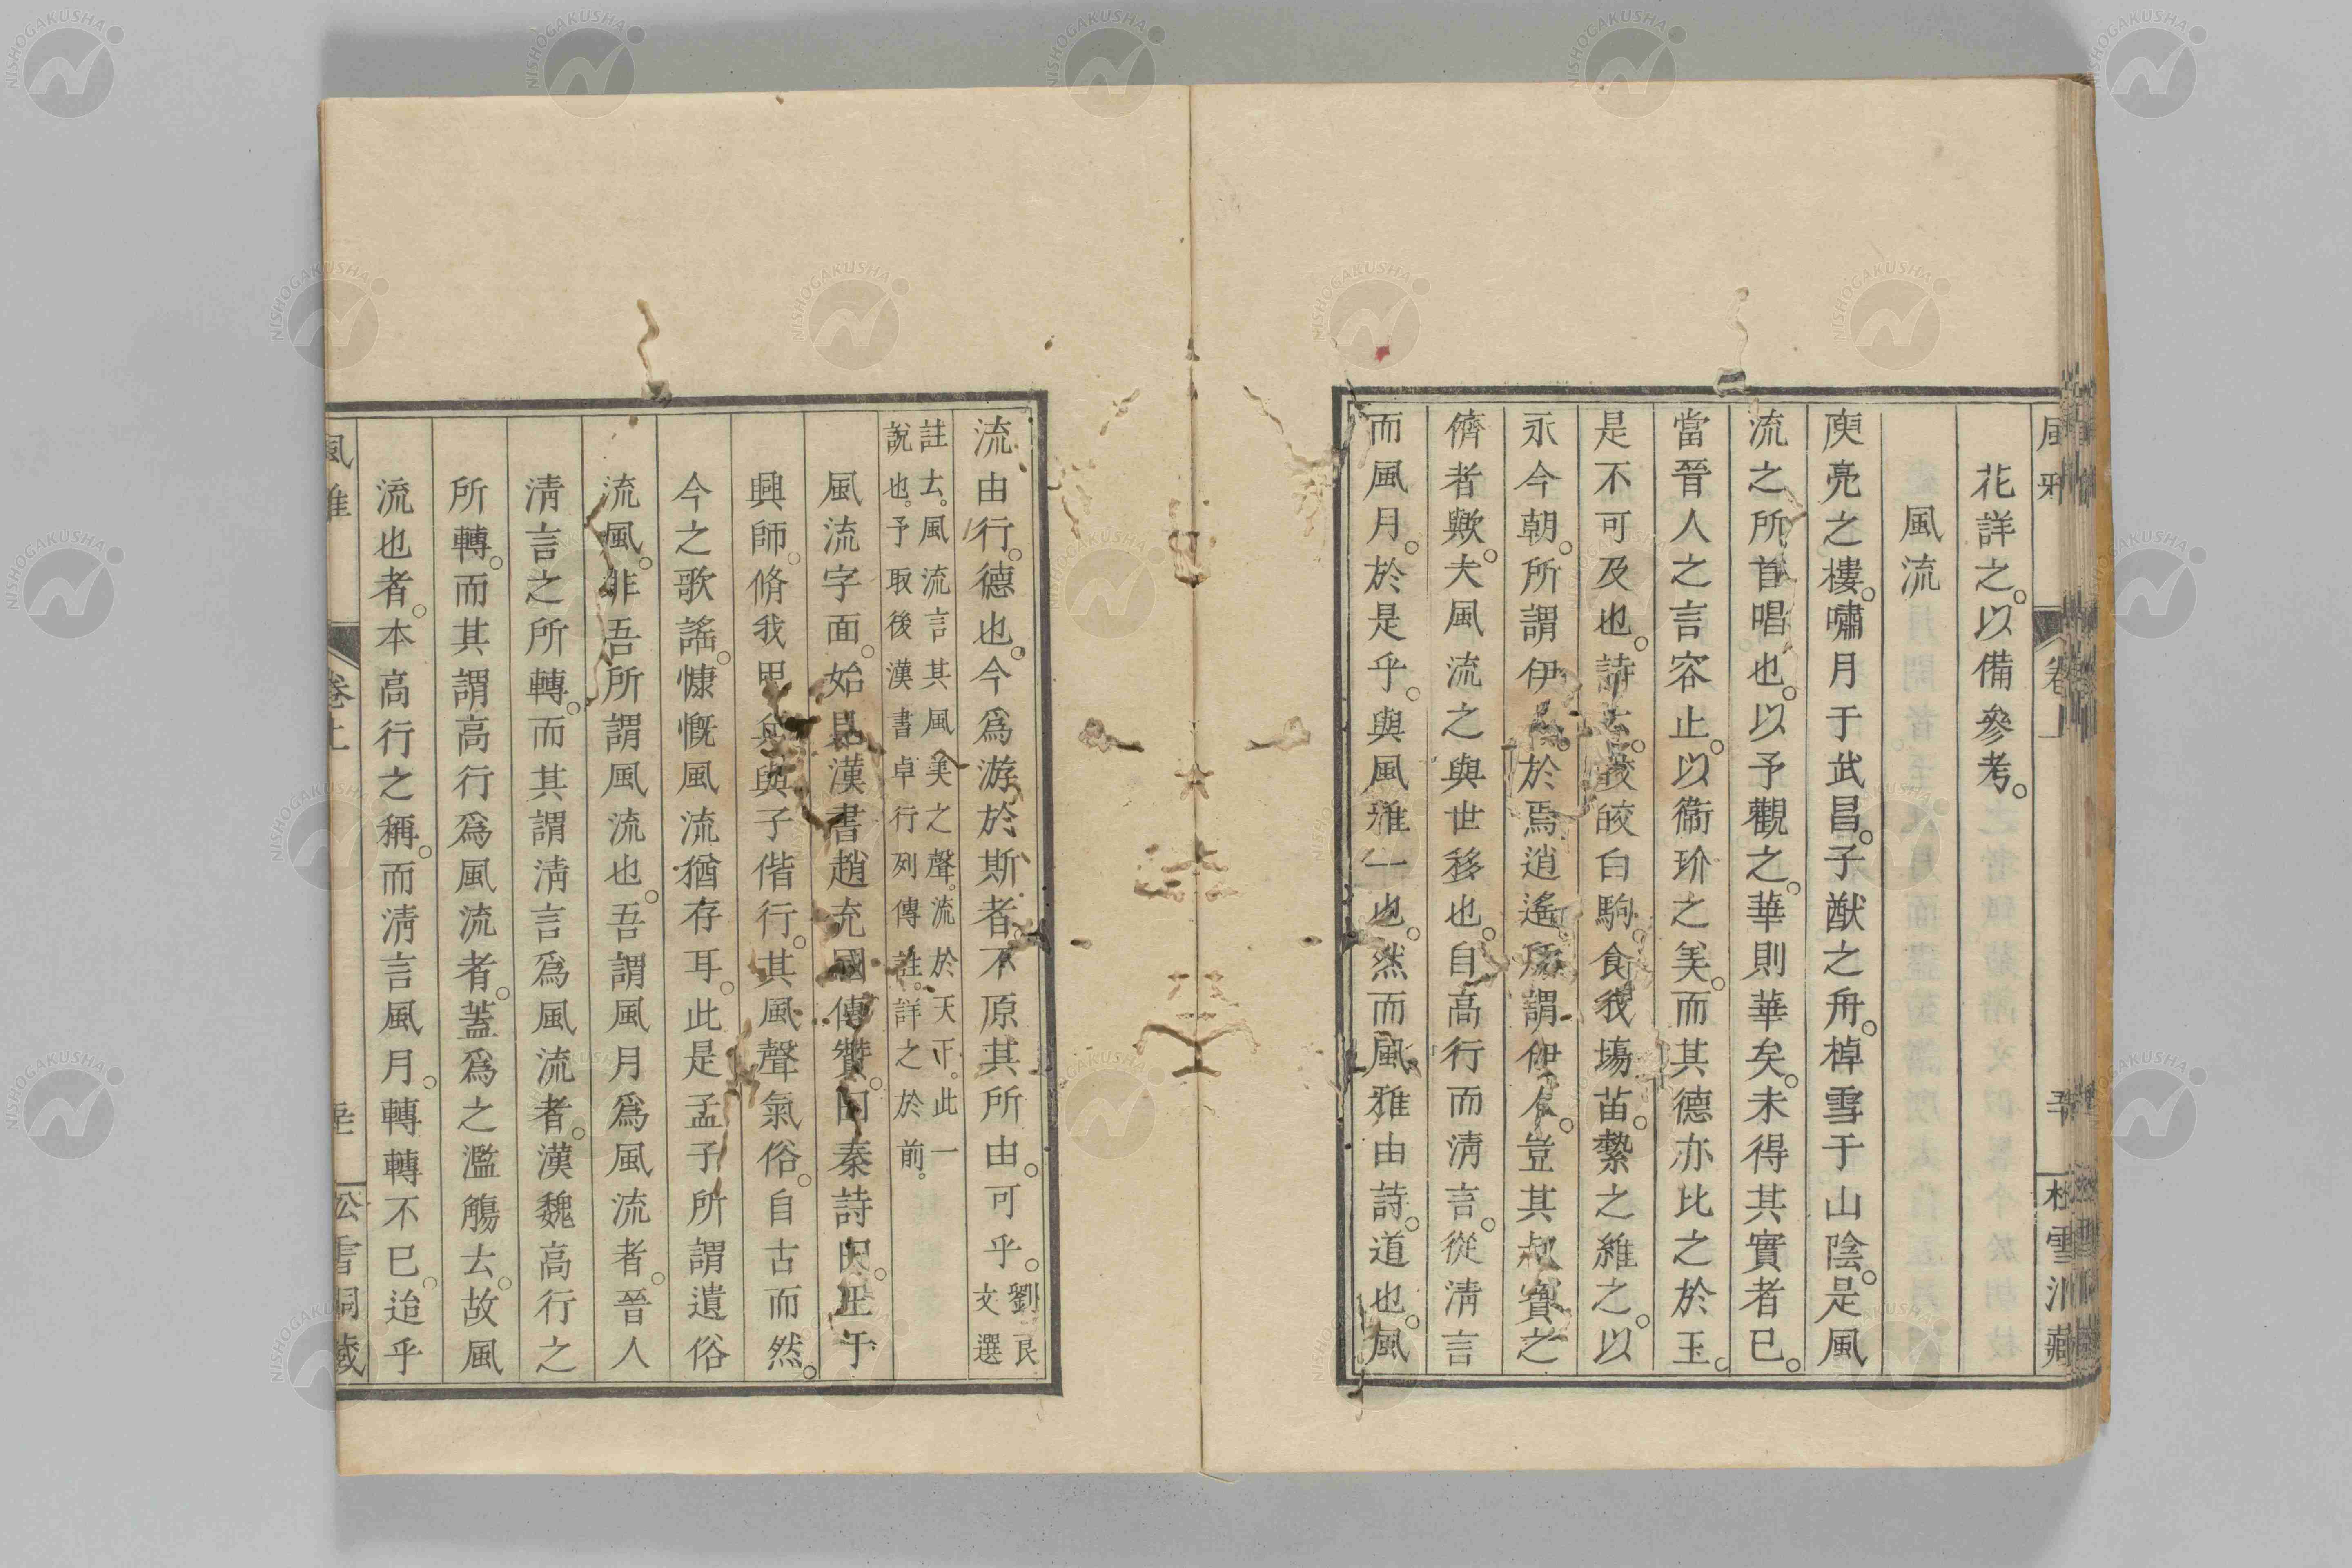 花詳之。以備參考。
風流
庾亮之樓。嘯月于武昌。子猷之舟。棹雪于山陰。是風
流之所首唱也。以予觀之。華則華矣。未得其實者已。
當晉人之言容止。以衞玠之美。而其德亦比之於玉。
是不可及也。詩云。皎皎白駒。食我場苗。縶之維之。以
永今朝。所謂伊人。於焉逍遙。所謂伊人。豈其叔寶之
儕者歟。夫風流之與世移也。自高行而淸言。從淸言
而風月。於是乎。與風雅一也。然而風雅由詩。道也。風
流由行。德也。今爲游於斯者。不原其所由。可乎。劉良文選
註云。風流言其風美之聲。流於天下。此一
說也。予取後漢書卓行列傳註。詳之於前。
風流字面。始見漢書趙充國傳贊。曰秦詩曰。王于
興師。脩我甲兵。與子偕行。其風聲氣俗。自古而然。
今之歌謠。慷慨風流猶存耳。此是孟子所謂遺俗
流風。非吾所謂風流也。吾謂風月爲風流者。晉人
淸言之所轉。而其謂淸言爲風流者。漢魏高行之
所轉。而其謂高行爲風流者。蓋爲之濫觴去。故風
流也者。本高行之稱。而淸言風月。轉轉不已。迨乎
風雅
卷上
松雪洞藏